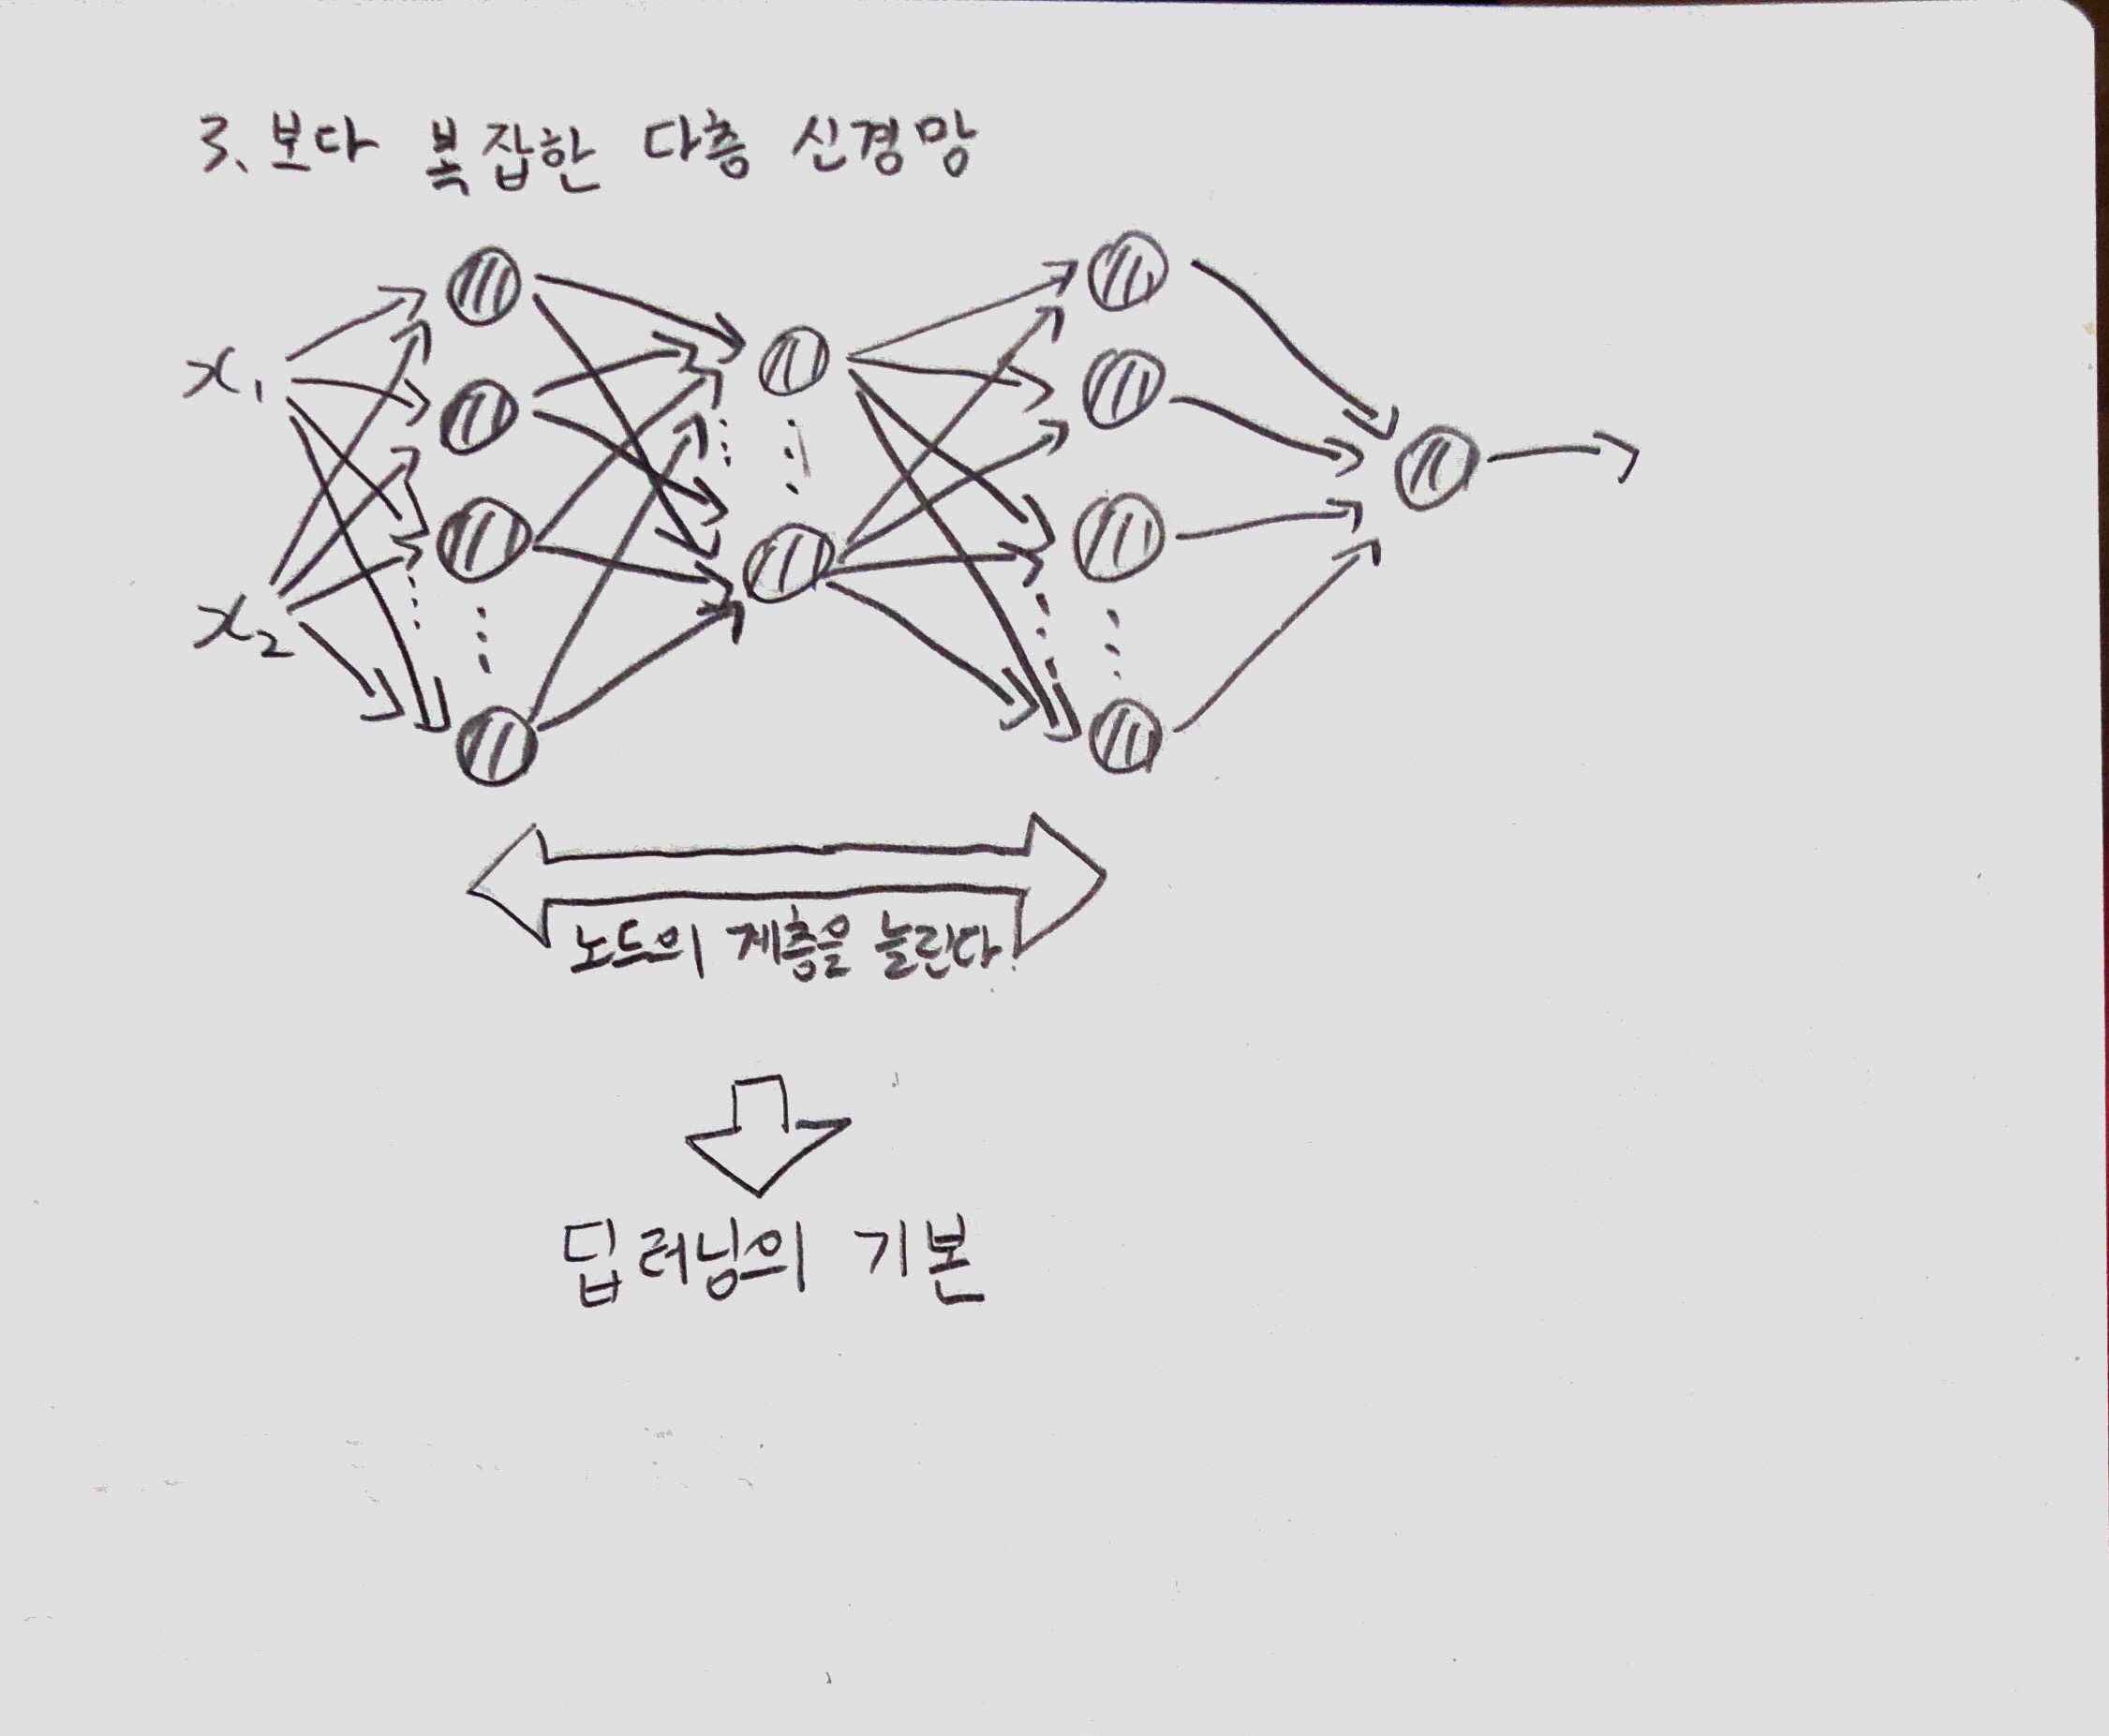 3. 보다 복잡한 다층 신경망
x₁
x₂
노드의 계층을 늘린다.
딥러닝의 기본